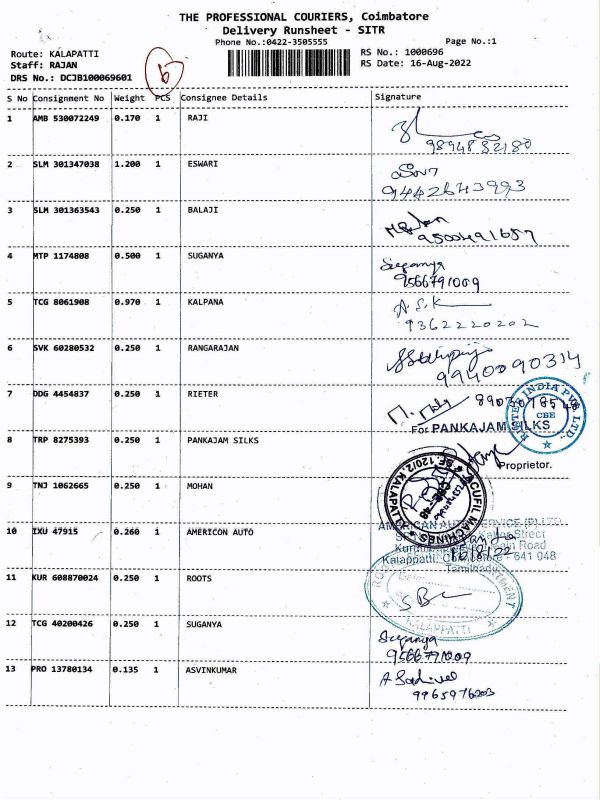 THE PROFESSIONAL COURIERS, Coimbatore
Delivery Runsheet - SITR
Phone No.:0422-3505555 Page No.:1
Route: KALAPATTI RS No.: 1000696
Staff: RAJAN RS Date: 16-Aug-2022
DRS No.: DCJB100069601
S No Consignment No Weight PCS Consignee Details Signature
1 AMB 530072249 0.170 1 RAJI
9894832180
2 SLM 301347038 1.200 1 ESWARI
9442643993
3 SLM 301363543 0.250 1 BALAJI
9500491657
4 MTP 1174808 0.500 1 SUGANYA Suganya
9566791009
5 TCG 8061908 0.970 1 KALPANA A.S.K
9362220202
6 SVK 60280532 0.250 1 RANGARAJAN
9940090314
7 DDG 4454837 0.250 1 RIETER
RIETER INDIA PVT. LTD.
CBE
For PANKAJAM SILKS
8 TRP 8275393 0.250 1 PANKAJAM SILKS
Proprietor.
9 TNJ 1062665 0.250 1 MOHAN
10 IXU 47915 0.260 1 AMERICON AUTO
AMERICAN AUTO SERVICE (P) LTD
Street
Road
Kalappatti, 641 048
Tamilnadu
16/8/22
11 KUR 608870024 0.250 1 ROOTS
KALAPPATTI
12 TCG 40200426 0.250 1 SUGANYA
Suganya
9566791009
13 PRO 13780134 0.135 1 ASVINKUMAR
9965976203